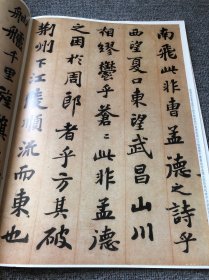 南飛此非曹孟德之詩乎
西望夏口東望武昌山川
相繆鬱乎蒼蒼此非孟德
之困於周郎者乎方其破
荊州下江陵順流而東也
舳艫千里旌旗